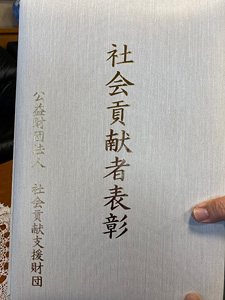 社会貢献者表彰
公益財団法人 社会貢献支援財団